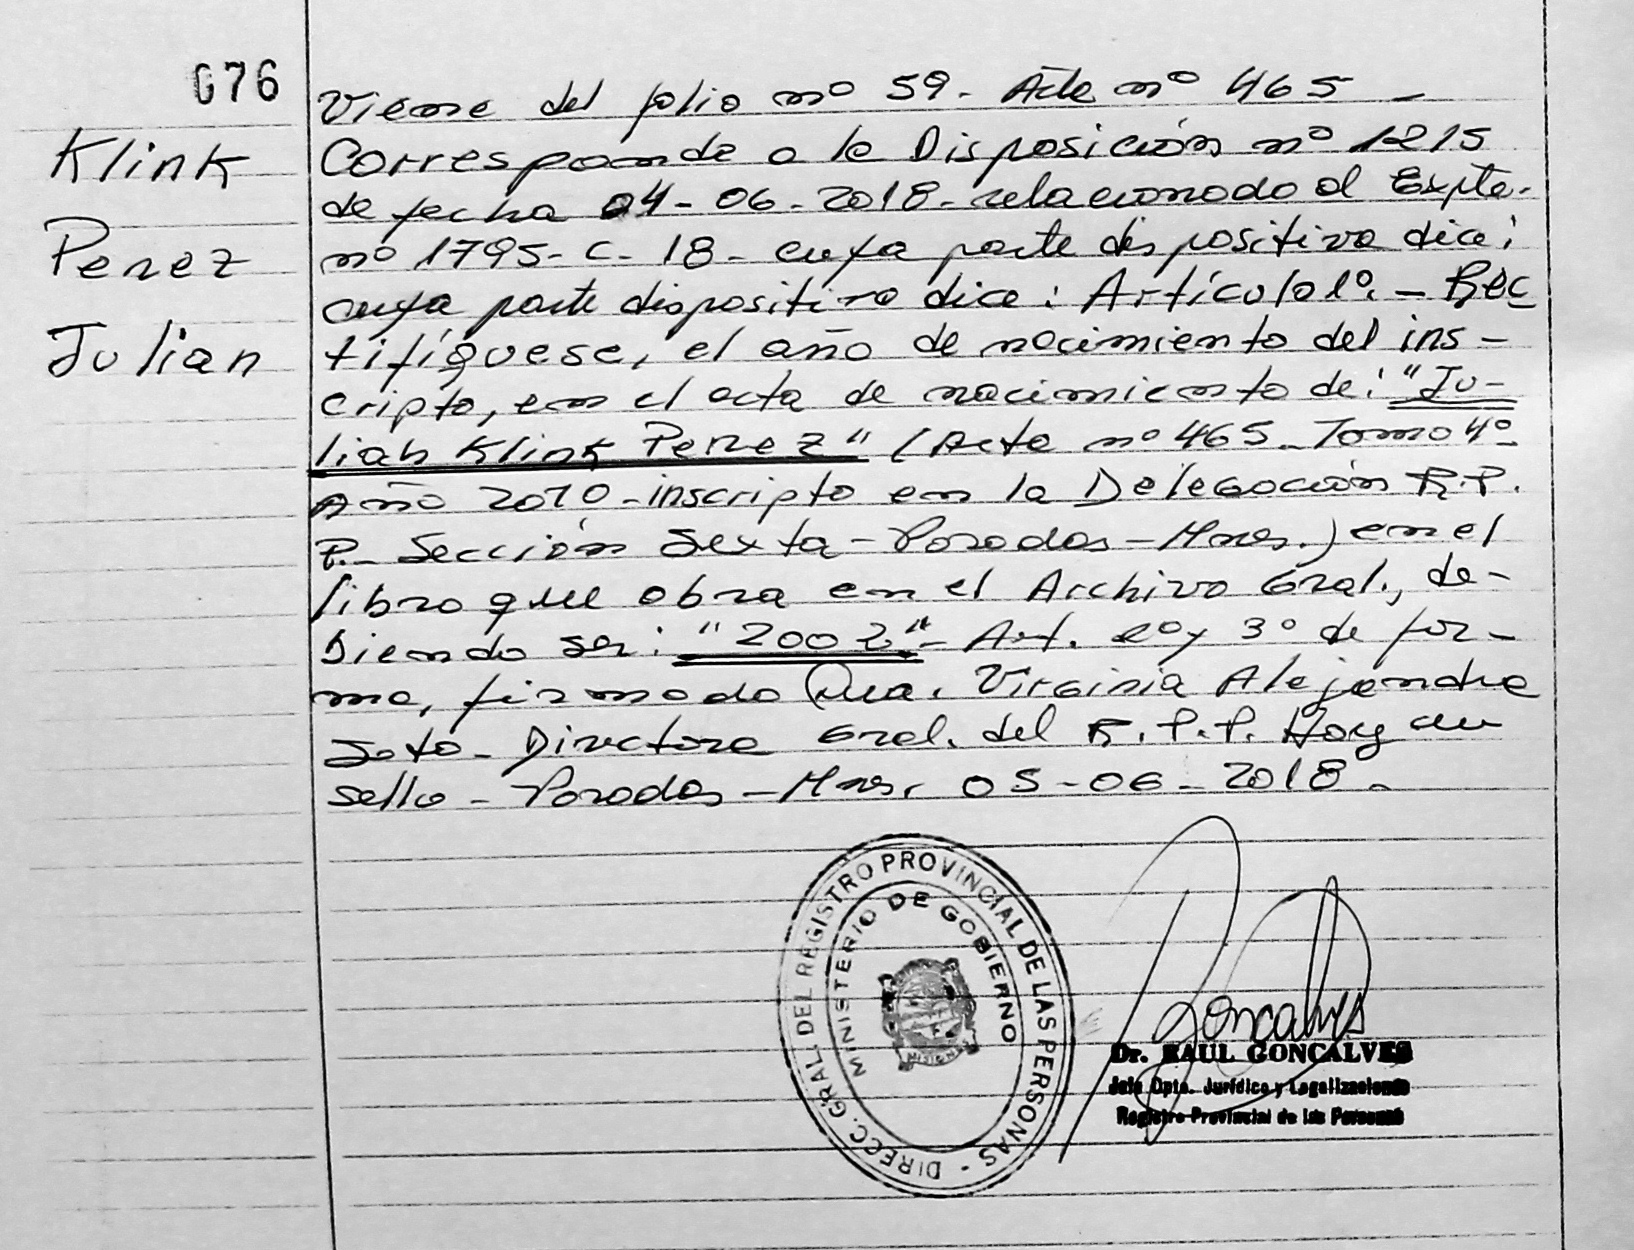 076
Klink
Perez
Julian
Viene del folio nº 59- Acta nº 465 -
Corresponde a la Disposición nº 1215
de fecha 04-06-2018- relacionado al Expte.
nº 1795-C-18- cuya parte dispositiva dice:
cuya parte dispositiva dice: Artículo 1º.- Rec
tifíquese, el año de nacimiento del ins-
cripto, en el acta de nacimiento de: "Ju-
lian Klink Perez" (Acta nº 465-Tomo 4º
Año 2010-inscripto en la Delegación R.P.
P.- Sección Sexta-Posadas-Mnes.) en el
libro que obra en el Archivo Gral., de-
biendo ser: "2002"- Art. 2º y 3º de for-
ma, firmado Dra. Virginia Alejandra
Soto- Directora Gral. del R.P.P. Hay un
sello- Posadas-Mnes, 05-06-2018-
DIRECC. GRAL. DEL REGISTRO PROVINCIAL DE LAS PERSONAS -
MINISTERIO DE GOBIERNO
MISIONES
Goncalves
Dr. RAUL GONCALVES
Jefe Dpto. Jurídico y Legalizaciones
Registro Provincial de las Personas